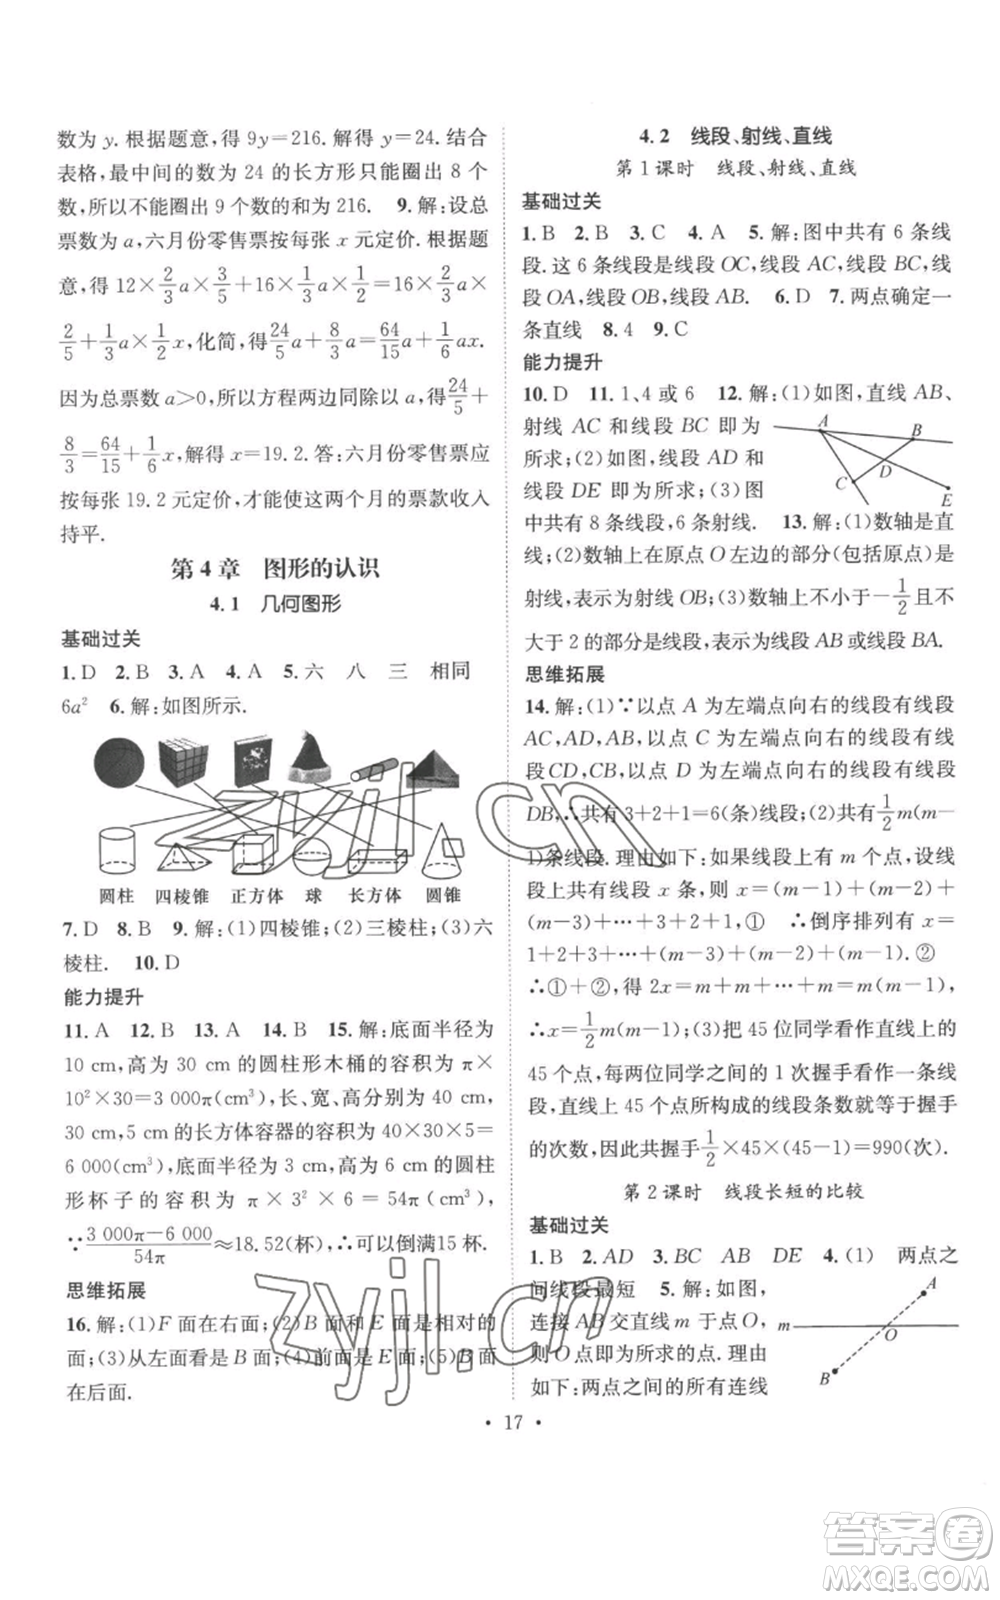 数为 y. 根据题意，得 9y=216. 解得 y=24. 结合
表格，最中间的数为 24 的长方形只能圈出 8 个
数，所以不能圈出 9 个数的和为 216. 9. 解：设总
票数为 a，六月份零售票按每张 x 元定价. 根据题
意，得 12×2/3a×3/5+16×1/3a×1/2=16×2/3a×
2/5+1/3a×1/2x，化简，得24/5a+8/3a=64/15a+1/6ax.
因为总票数 a>0，所以方程两边同除以 a，得24/5+
8/3=64/15+1/6x. 解得 x=19.2. 答：六月份零售票应
按每张 19.2 元定价，才能使这两个月的票款收入
持平.
第 4 章 图形的认识
4.1 几何图形
基础过关
1. D 2. B 3. A 4. A 5. 六 八 三 相同
6a² 6. 解：如图所示.
圆柱 四棱锥 正方体 球 长方体 圆锥
7. D 8. B 9. 解：(1)四棱锥；(2)三棱柱；(3)六
棱柱. 10. D
能力提升
11. A 12. B 13. A 14. B 15. 解：底面半径为
10 cm，高为 30 cm 的圆柱形木桶的容积为 π×
10²×30=3 000π(cm³)，长、宽、高分别为 40 cm，
30 cm，5 cm 的长方体容器的容积为 40×30×5=
6 000(cm³)，底面半径为 3 cm，高为 6 cm 的圆柱
形杯子的容积为 π×3²×6=54π(cm³)，
∵(3 000π-6 000)/54π≈18.52(杯)，∴可以倒满15 杯.
思维拓展
16. 解：(1)F 面在右面；(2)B 面和 E 面是相对的两
面；(3)从左面看是 B 面；(4)前面是 E 面；(5)B 面
在后面.
4.2 线段、射线、直线
第 1 课时 线段、射线、直线
基础过关
1. B 2. B 3. C 4. A 5. 解：图中共有 6 条线
段. 这 6 条线段是线段 OC，线段 AC，线段 BC，线
段 OA，线段 OB，线段 AB. 6. D 7. 两点确定一
条直线 8. 4 9. C
能力提升
10. D 11. 1、4 或 6 12. 解：(1)如图，直线 AB、
射线 AC 和线段 BC 即为
所求；(2)如图，线段 AD 和
线段 DE 即为所求；(3)图
A B D C E
中共有 8 条线段，6 条射线. 13. 解：(1)数轴是直
线；(2)数轴上在原点 O 左边的部分(包括原点)是
射线，表示为射线 OB；(3)数轴上不小于-1/2且不
大于 2 的部分是线段，表示为线段 AB 或线段 BA.
思维拓展
14. 解：(1)∵以点 A 为左端点向右的线段有线段
AC，AD，AB，以点 C 为左端点向右的线段有线
段 CD，CB，以点 D 为左端点向右的线段有线段
DB，∴共有 3+2+1=6(条)线段；(2)共有1/2m(m-
1)条线段. 理由如下：如果线段上有 m 个点，设线
段上共有线段 x 条，则 x=(m-1)+(m-2)
+(m-3)+…+3+2+1，① ∴倒序排列有 x=
1+2+3+…+(m-3)+(m-2)+(m-1). ②
∴①+②，得 2x=m+m+…+m=m(m-1)，
∴x=1/2m(m-1)；(3)把 45 位同学看作直线上的
45 个点，每两位同学之间的 1 次握手看作一条线
段，直线上 45 个点所构成的线段条数就等于握手
的次数，因此共握手1/2×45×(45-1)=990(次).
第 2 课时 线段长短的比较
基础过关
1. B 2. AD 3. BC AB DE 4. (1) 两点之
间线段最短 5. 解：如图，
连接 AB 交直线 m 于点 O，
则 O 点即为所求的点. 理由
如下：两点之间的所有连线
A m O B
• 17 •
zyjl.cn
zyjl.cn
答案圈
MXQE.COM